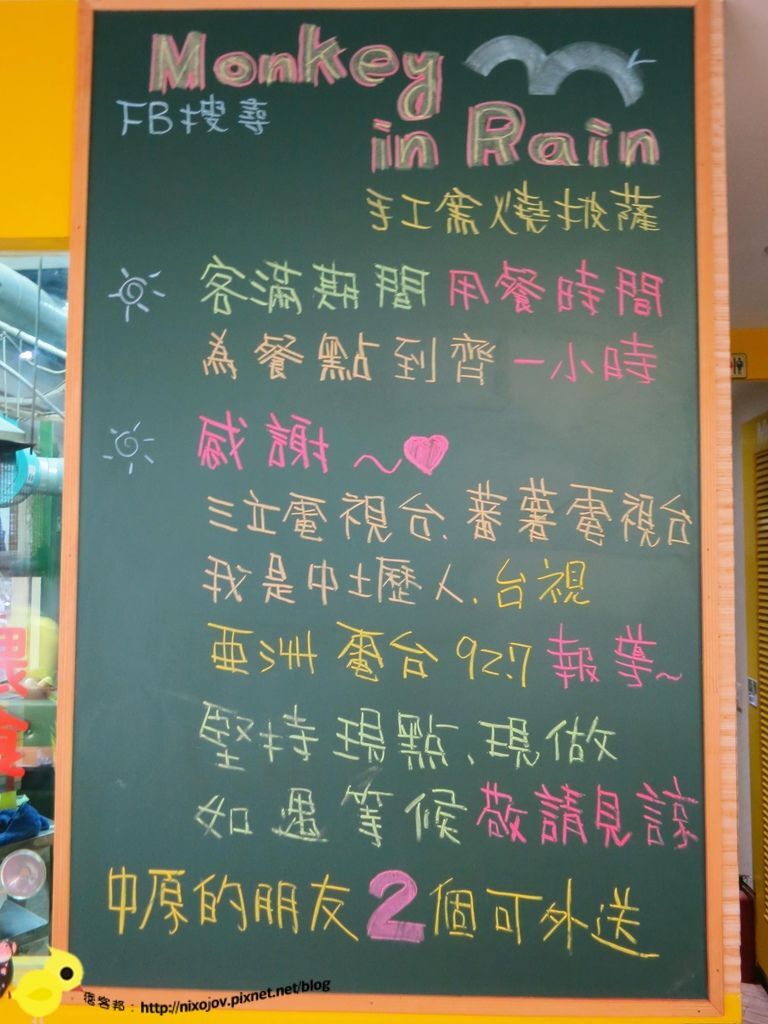 Monkey
FB搜尋
in Rain
手工窯燒披薩
客滿期間用餐時間
為餐點到齊一小時
感謝~
三立電視台.蕃薯電視台
我是中土壢人.台視
亞洲電台92.7報導~
堅持現點、現做
如遇等候敬請見諒
中原的朋友2個可外送
痞客邦：http://nixojov.pixnet.net/blog